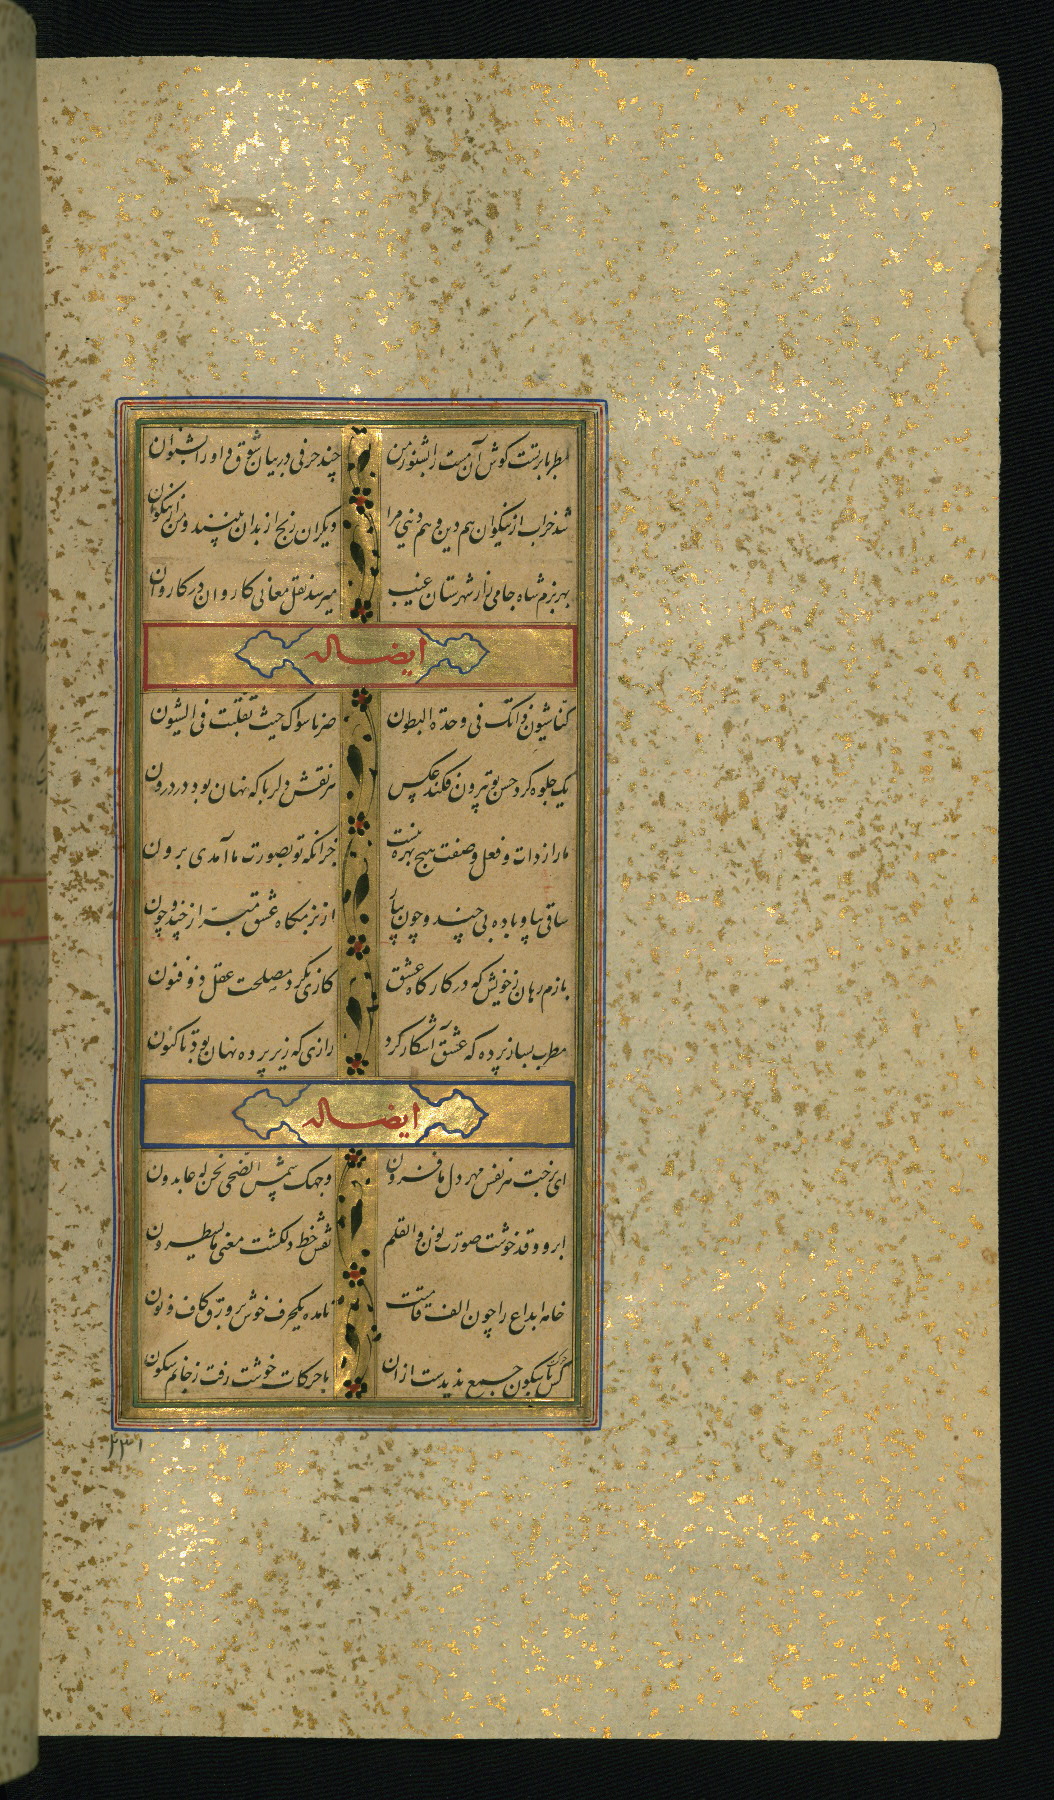 مطربا بر تست گوش آن مست را بشنو ز من
چند حرفی در بیان شوق و او را بشنوان
شد خراب از نیکوان هم دین و هم دنیی مرا
دیگران رنج از بدان بینند و من از نیکوان
بهر بزم شاه جامی را ز شهرستان غیب
میرسد نقل معانی کاروان در کاروان
ایضا له
کنا شیون ذاتک فی وحدة البطون
صرنا سواک حیث تقلبت فی الشیون
یک جلوه کرد حسن تو بیرون فکند عکس
هر نقش دلربا که نهان بود در درون
ما را ز ذات و فعل و صفت هیچ بهره نیست
جز آنکه تو بصورت ما آمدی برون
ساقی بیا و باده بی چند و چون بیار
از بزمگاه عشق مبرا ز چند و چون
بازم رهان ز خویش که در کارگاه عشق
کاری نکرد مصلحت عقل ذو فنون
مطرب بساز پرده که عشق آشکار کرد
رازی که زیر پرده نهان بود تا کنون
ایضا له
ای برخت هر نفس مهر دل ما فزون
وجهک شمس الضحی نحن له عابدون
ابرو و قد خوشت صورت نون والقلم
نقش خط دلکشت معنی ما یسطرون
خامه ابداع را چون الف قامتت
نامده یکحرف خوش بر ورق کاف و نون
کس حرکت با سکون جمع ندیدست از آن
با حرکات خوشت رفت ز جانم سکون
۲۳۱